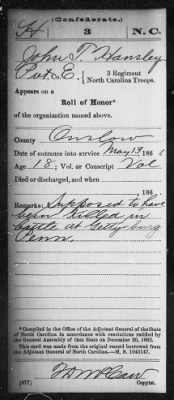 (Confederate.)
H 3 N. C.
John T. Hansley
Pvt. E. 3 Regiment
North Carolina Troops.
Appears on a
Roll of Honor*
of the organization named above.
County Onslow
Date of entrance into service May 13, 186
Age 18; Vol. or Conscript Vol
Died or discharged, and when
, 186
Remarks: Supposed to have
been killed in
battle at Gettysburg
Penn.
*Compiled in the Office of the Adjutant General of the State
of North Carolina in accordance with resolutions ratified by
the General Assembly of that State on December 20, 1862.
This card was made from the original record borrowed from
the Adjutant General of North Carolina.—R. & P. 
(677) Copyist.